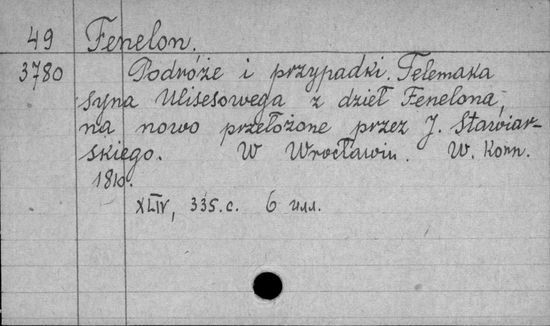 49 Fenelon.
3780 Podróże i przypadki. Telemaka
syna Ulisesowega z dzieł Fenelona,
na nowo przełożone przez J. Stawiar-
skiego. W Wrocławiu. W. Korn.
1810.
XLIV, 335.c. 6 илл.